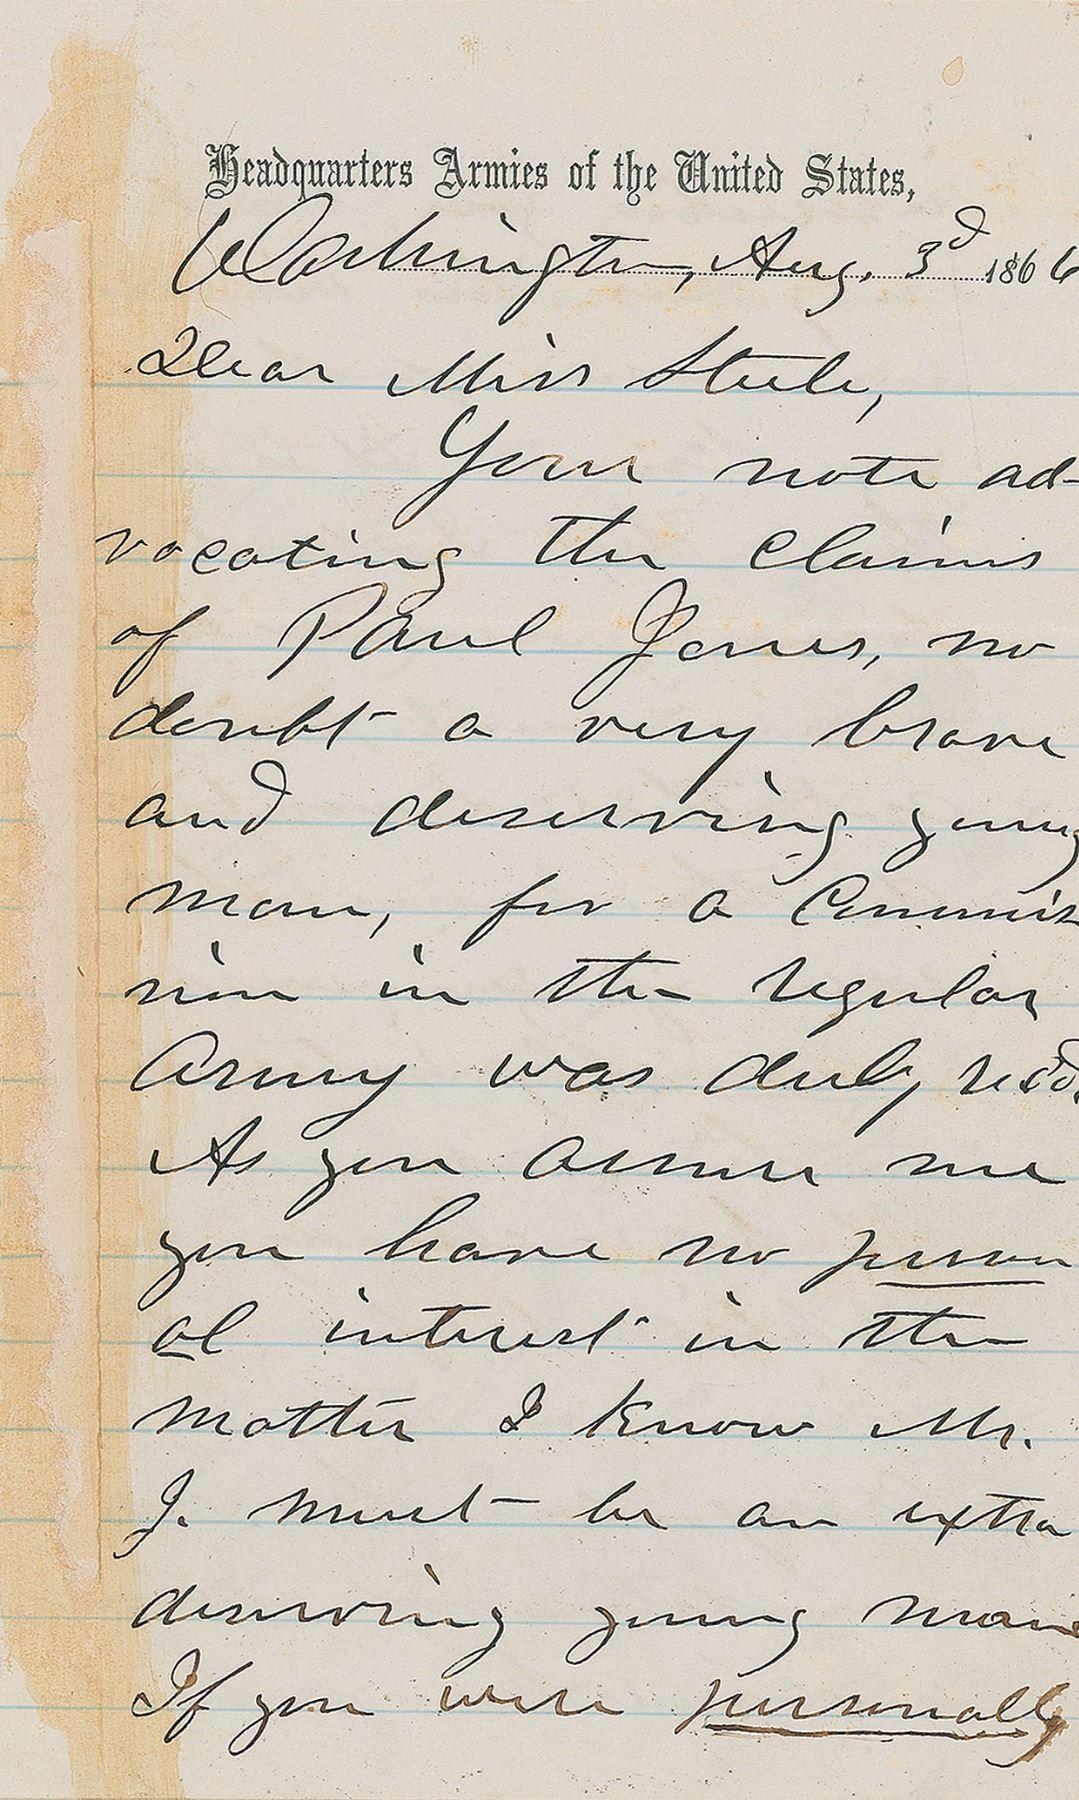 Headquarters Armies of the United States,
Washington, Aug. 3d 1866
Dear Miss Steele,
Your note ad-
vocating the claims
of Paul Jones, no
doubt a very brave
and deserving young
man, for a Commis
sion in the regular
Army was duly rec'd.
As you assure me
you have no person
al interest in the
matter I know Mr.
J. must be an extra
deserving young man
If you were personally